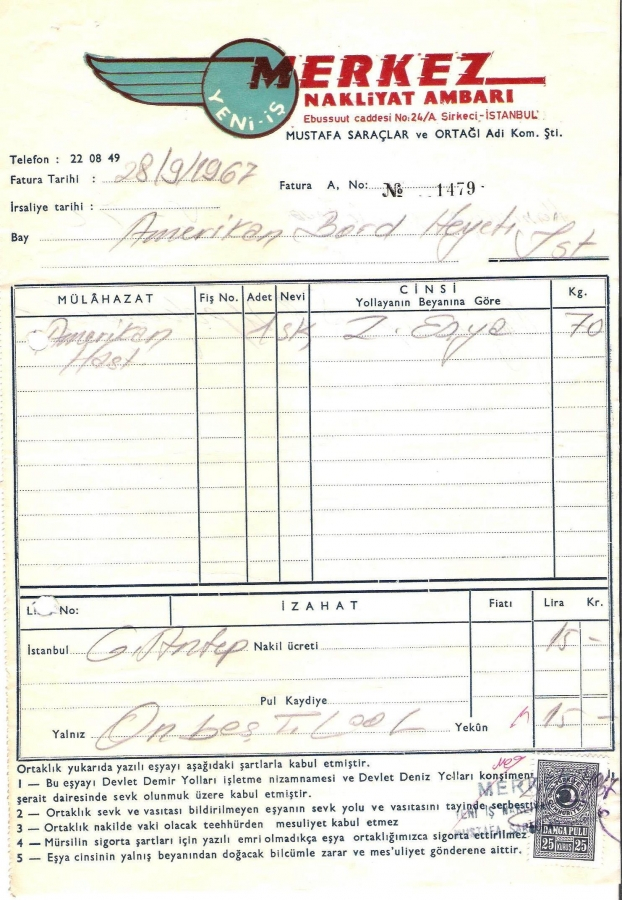 MERKEZ
YENİ-İŞ
NAKLİYAT AMBARI
Ebussuut caddesi No: 24/A Sirkeci-İSTANBUL
MUSTAFA SARAÇLAR ve ORTAĞI Adi Kom. Şti.
Telefon : 22 08 49
Fatura Tarihi : 28/9/1967
Fatura A, No: № 1479
İrsaliye tarihi :
Bay Amerikan Bord Heyeti İst
MÜLÂHAZAT Fiş No. Adet Nevi CİNSİ Kg.
Yollayanın Beyanına Göre
Amerikan 1 sk Z. Eşya 70
Hast
No: İZAHAT Fiatı Lira Kr.
İstanbul G. Antep Nakil ücreti 15 -
Pul Kaydiye
Yalnız On beş T. L Yekûn 15 -
Ortaklık yukarıda yazılı eşyayı aşağıdaki şartlarla kabul etmiştir.
1 — Bu eşyayı Devlet Demir Yolları işletme nizamnamesi ve Devlet Deniz Yolları konşiment
şerait dairesinde sevk olunmak üzere kabul etmiştir.
2 — Ortaklık sevk ve vasıtası bildirilmeyen eşyanın sevk yolu ve vasıtasını tayinde serbestiya
3 — Ortaklık nakilde vaki olacak teehhürden mesuliyet kabul etmez
4 — Mürsilin sigorta şartları için yazılı emri olmadıkça eşya ortaklığımızca sigorta ettirilmez
5 — Eşya cinsinin yalnış beyanından doğacak bilcümle zarar ve mes'uliyet gönderene aittir.
MERK
YENİ İŞ
MUSTAFA
DAMGA PULU
25 KURUŞ 25